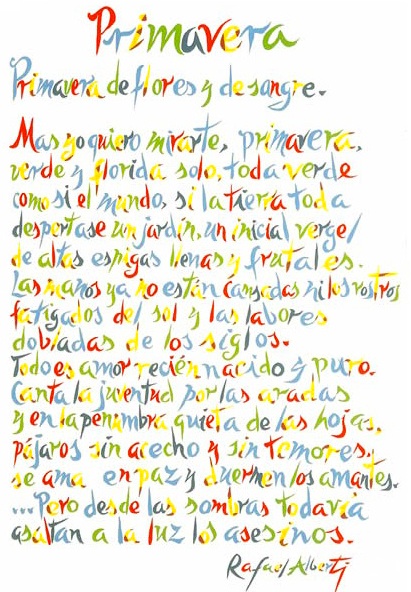 Primavera
Primavera de flores y de sangre.
Mas yo quiero mirarte, primavera,
verde y florida solo, toda verde
como si el mundo, si la tierra toda
despertase un jardín, un inicial vergel
de altas espigas llenas y frutales.
Las manos ya no están cansadas ni los rostros
fatigados del sol y las labores
dobladas de los siglos.
Todo es amor recién nacido y puro.
Canta la juventud por las aradas
y en la penumbra quieta de las hojas,
pájaros sin acecho y sin temores.
se ama en paz y duermen los amantes.
...Pero desde las sombras todavía
asaltan a la luz los asesinos.
Rafael Alberti